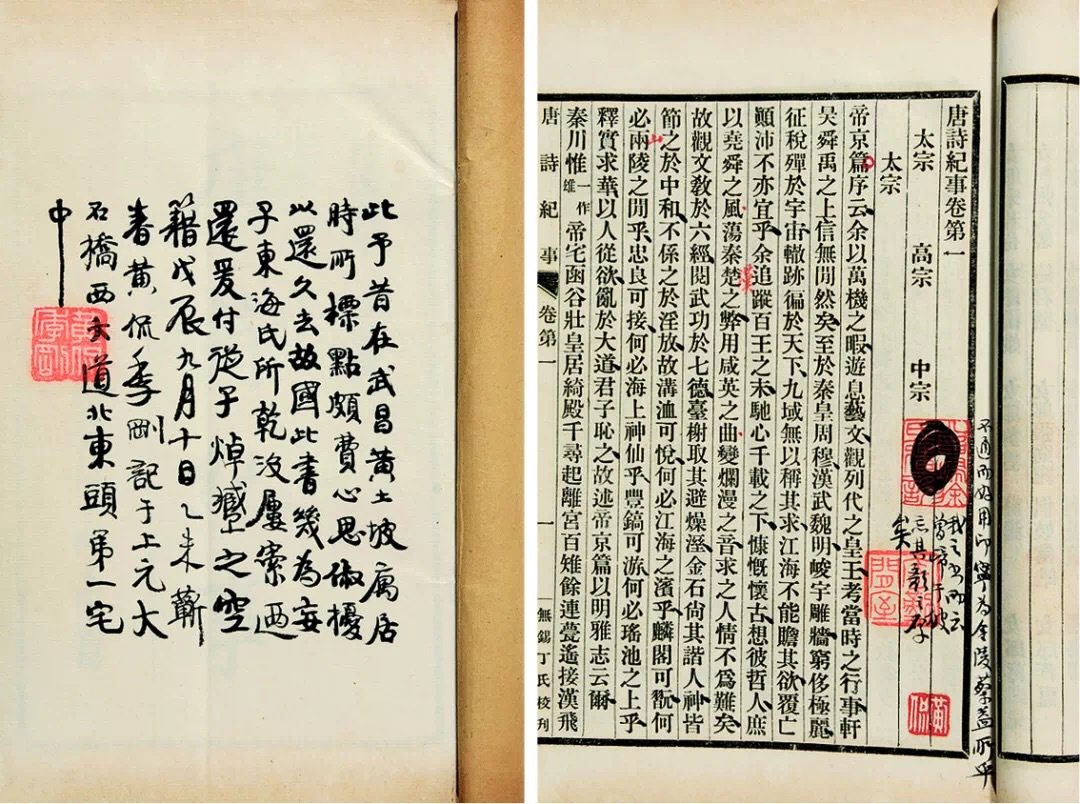 此予昔在武昌黃土坡寓居
時所標點頗費心思俶擾
以還久去故國此書幾為妄
子東海氏所乾沒屢索迺
還爰付從子焯臧之空
籍戊辰九月十日乙未蘄
春黃侃季剛記于上元大
石橋西大道北東頭第一宅
中
黃侃季剛
不通而好用印寧為金陵蔡益所乎
唐詩紀事卷第一
太宗 高宗 中宗
太宗
黃侃
帝京篇序云余以萬機之暇遊息藝文觀列代之皇王考當時之行事軒
昊舜禹之上信無閒然矣至於秦皇周穆漢武魏明峻宇雕牆窮侈極麗
征稅殫於宇宙轍跡徧於天下九域無以稱其求江海不能贍其欲覆亡
顛沛不亦宜乎余追蹤百王之末馳心千載之下慷慨懷古想彼哲人庶
以堯舜之風蕩秦楚之弊用咸英之曲變爛漫之音求之人情不爲難矣
故觀文敎於六經閱武功於七德臺榭取其避燥溼金石尙其諧人神皆
節之於中和不係之於淫放故溝洫可悅何必江海之濱乎麟閣可翫何
必兩陵之閒乎忠良可接何必海上神仙乎豐鎬可游何必瑤池之上乎
釋實求華以人從欲亂於大道君子恥之故述帝京篇以明雅志云爾
秦川惟一作雄帝宅函谷壯皇居綺殿千尋起離宮百雉餘連甍遙接漢飛
唐詩紀事 卷第一 一 無錫丁氏校刊